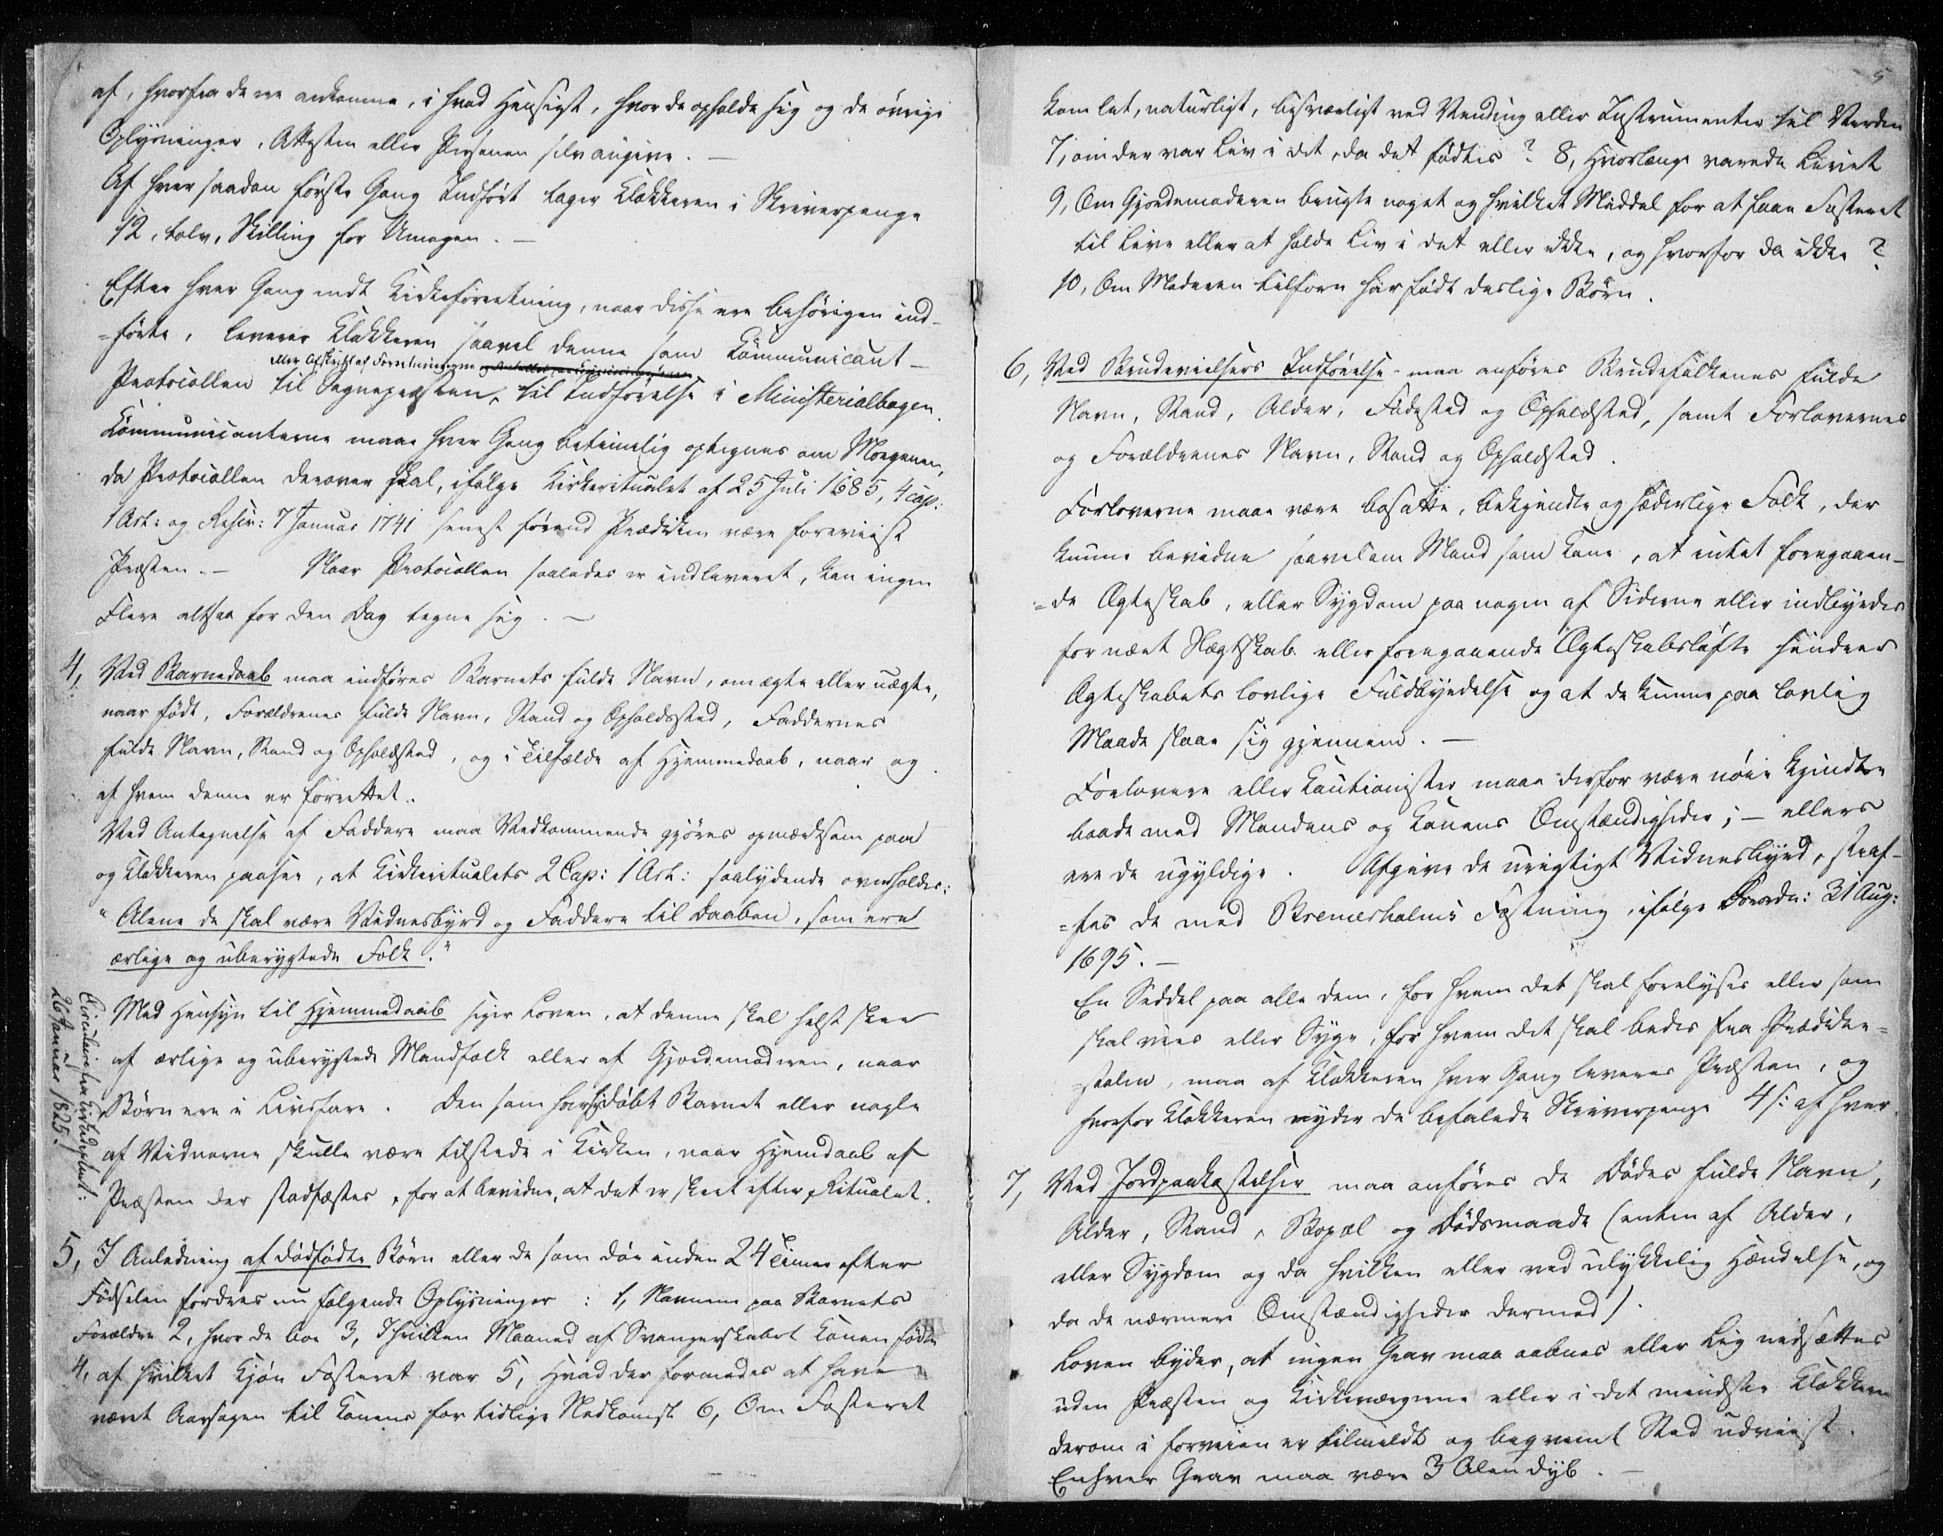 af, hvorfra de ere ankomne, i hvad Hensigt, hvor de opholde sig og de övrige
Oplysninger, Attesten eller Personen selv angive. —
Af hver saadan første Gang Indført tager Klokkeren i Skriverpenge
12, tolv, Skilling for Umagen. —
Efter hver Gang endt Kirkeforretning, naar disse ere behörigen ind-
=förte, leverer Klokkeren saavel denne som Communicant-
eller Afskrift af Forretningerne
Protocollen til Sognepræsten, til Indförelse i Ministerialbogen.
Communicanterne maae hver Gang betimelig optegnes om Morgenen,
da Protocollen derover skal, ifølge Kirkeritualet af 25 Juli 1685, 4 Cap:
1 Art: og Rescr: 7 Januar 1741 senest förend Prædiken være foreviist
Præsten. — Naar Protocollen saaledes er indleveret, kan ingen
Flere altsaa for den Dag tegne sig. —
4, Ved Barnedaab maa indföres Barnets fulde Navn, om ægte eller uægte,
naar födt, Forældrenes fulde Navn, Stand og Opholdssted, Faddernes
fulde Navn, Stand og Opholdssted, og i Tilfælde af Hjemmedaab, naar og
af hvem denne er forrettet.
Ved Antegnelse af Faddere maa Vedkommende gjöres opmærksom paa
og Klokkeren paasee, at Kirkeritualets 2 Cap: 1 Art: saalydende overholdes:
"Alene de skal være Vidnesbyrd og Faddere til Daaben, som ere
ærlige og uberygtede Folk."
Med Hensyn til Hjemmedaab siger Loven, at denne skal helst skee
af ærlige og uberygtede Mandfolk eller af Gjordemoderen, naar
Börn ere i Livsfare. Den som har hjdöbt Barnet eller nogle
af Vidnerne skulle være tilstede i Kirken, naar Hjemdaab af
Præsten der stadfæstes, for at bevidne, at det er skeet efter Ritualet.
Circulaire fra Kirkedepartem:
26 Januar 1825.
5, I Anledning af dödfödte Börn eller de som döe inden 24 Timer efter
Födselen fordres nu fölgende Oplysninger: 1, Navnene paa Barnets
Forældre 2, hvor de boe 3, I hvilken Maaned af Svangerskabet Konen födte
4, af hvilket Kjön Fosteret var 5, Hvad der formodes at have
været Aarsagen til Konens for tidlige Nedkomst 6, Om Fosteret
5
kom let, naturligt, besværligt ved Vending eller Instrumenter til Verden
7, om der var Liv i det, da det födtes? 8, Hvorlænge varede Livet
9, Om Gjordemoderen brugte noget og hvilket Middel for at faae Fosteret
til Live eller at holde Liv i det eller ikke, og hvorfor da ikke?
10, Om Moderen tilforn har födt deslige Börn.
6, Ved Brudevielsers Indförelse maa anföres Brudefolkenes fulde
Navn, Stand, Alder, Födested og Opholdsted, samt Forlovernes
og Forældrenes Navn, Stand og Opholdsted.
Forloverne maae være bosatte, bekjendte og hæderlige Folk, der
kunne bevidne saavel om Mand som Kone, at intet foregaaen-
=de Ægteskab, eller Sygdom paa nogen af Siderne eller indbyrdes
for nært Slægtskab eller foregaaende Ægteskabslöfte hindrer
Ægteskabets lovlige Fuldbyrdelse og at de kunne paa lovlig
Maade slaae sig gjennem. —
Forlovere eller Cautionister maae derfor være nöie kjendte
baade med Mandens og Konens Omstændigheder; — ellers
ere de ugyldige. Afgive de urigtigt Vidnesbyrd, straf-
=fes de med Bremerholms Fæstning, ifölge Forordn: 31 Aug:
1695. —
En Seddel paa alle dem, for hvem det skal forelyses eller som
skal vies eller Syge, for hvem det skal bedes fra Prædike-
=stolen, maa af Klokkeren hver Gang leveres Præsten, og
hvorfor Klokkeren nyder de befalede Skriverpenge 4 s: af hver
7, Ved Jordpaakastelser maa anföres de Dödes fulde Navn,
Alder, Stand, Bopæl og Dödsmaade (enten af Alder,
eller Sygdom og da hvilken eller ved ulykkelig Hændelse, og
da de nærmere Omstændigheder dermed).
Loven byder, at ingen Grav maa aabnes eller Lig nedsættes
uden Præsten og Kirkeværgerne eller i det mindste Klokkeren
derom i Forveien er tilmeldt og beqvemt Sted udviist.
Enhver Grav maa være 3 Alen dyb. —